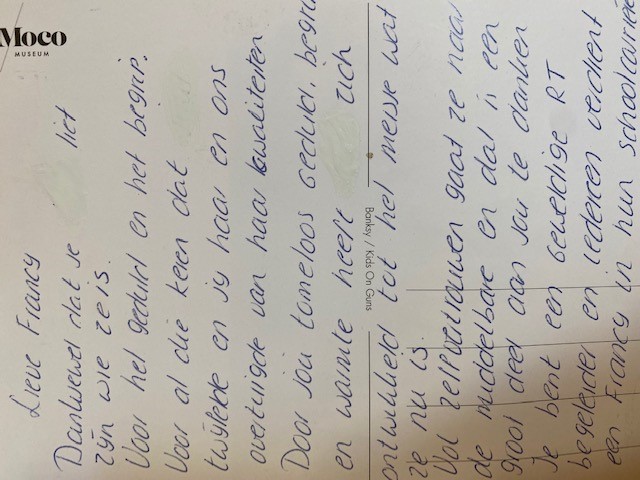 Moco
MUSEUM
Lieve Francy
Dankwewel dat je liet
zijn wie ze is.
Voor het geduld en het begrip.
Voor al die keren dat
twijfelde en jij haar en ons
overtuigde van haar kwaliteiten
Door jou tomeloos geduld, begrip
en warmte heeft zich
Banksy / Kids On Guns
ontwikkeld tot het meisje wat
ze nu is.
Vol zelfvertrouwen gaat ze naar
de middelbare en dat is een
groot deel aan jou te danken
Je bent een geweldige RT
begeleider en iedereen verdient
een Francy in hun schoolcarrière